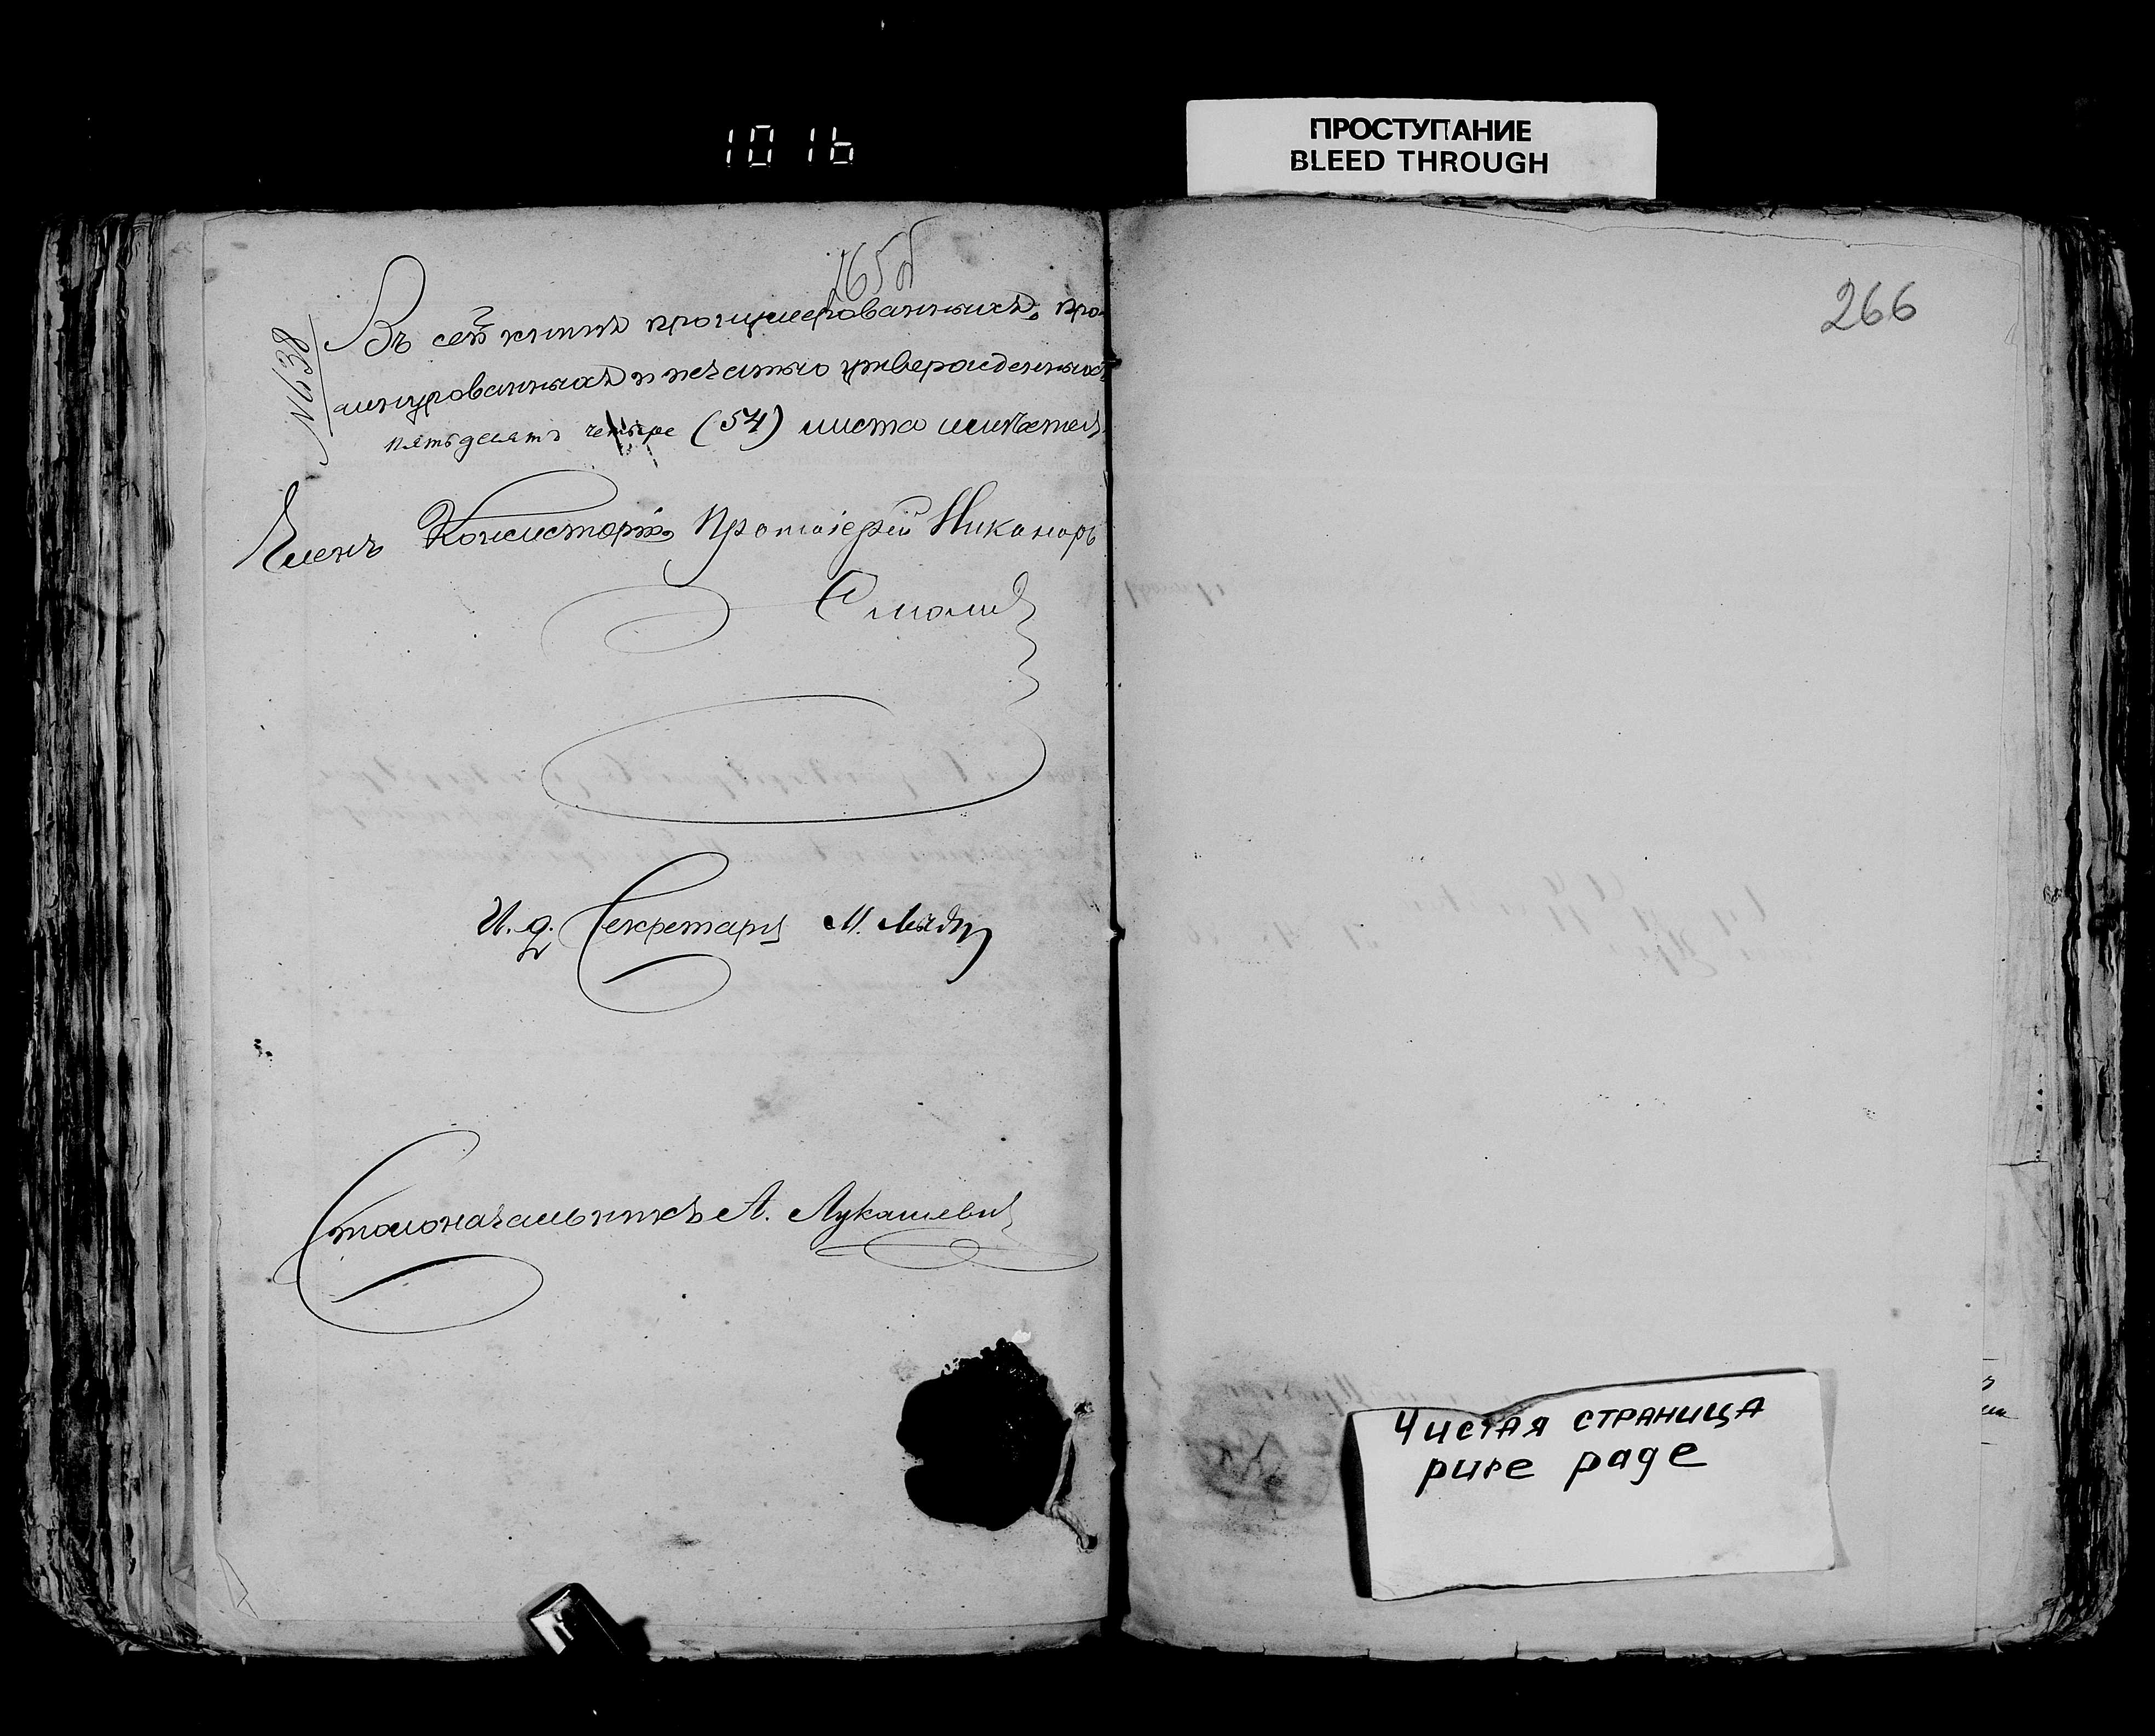 1016
ПРОСТУПАНИЕ
BLEED THROUGH
265об
266
№ 1938
Въ сей книгѣ пронумерованныхъ, про-
шнурованныхъ и печатью утвержденныхъ
пятьдесятъ четыре (54) листа имѣется
Членъ Консисторіи, Протоіерей Никаноръ
Смолич
И. д. Секретаря М.
Столоначальникъ А. Лукашевич
Чистая страница
pure page